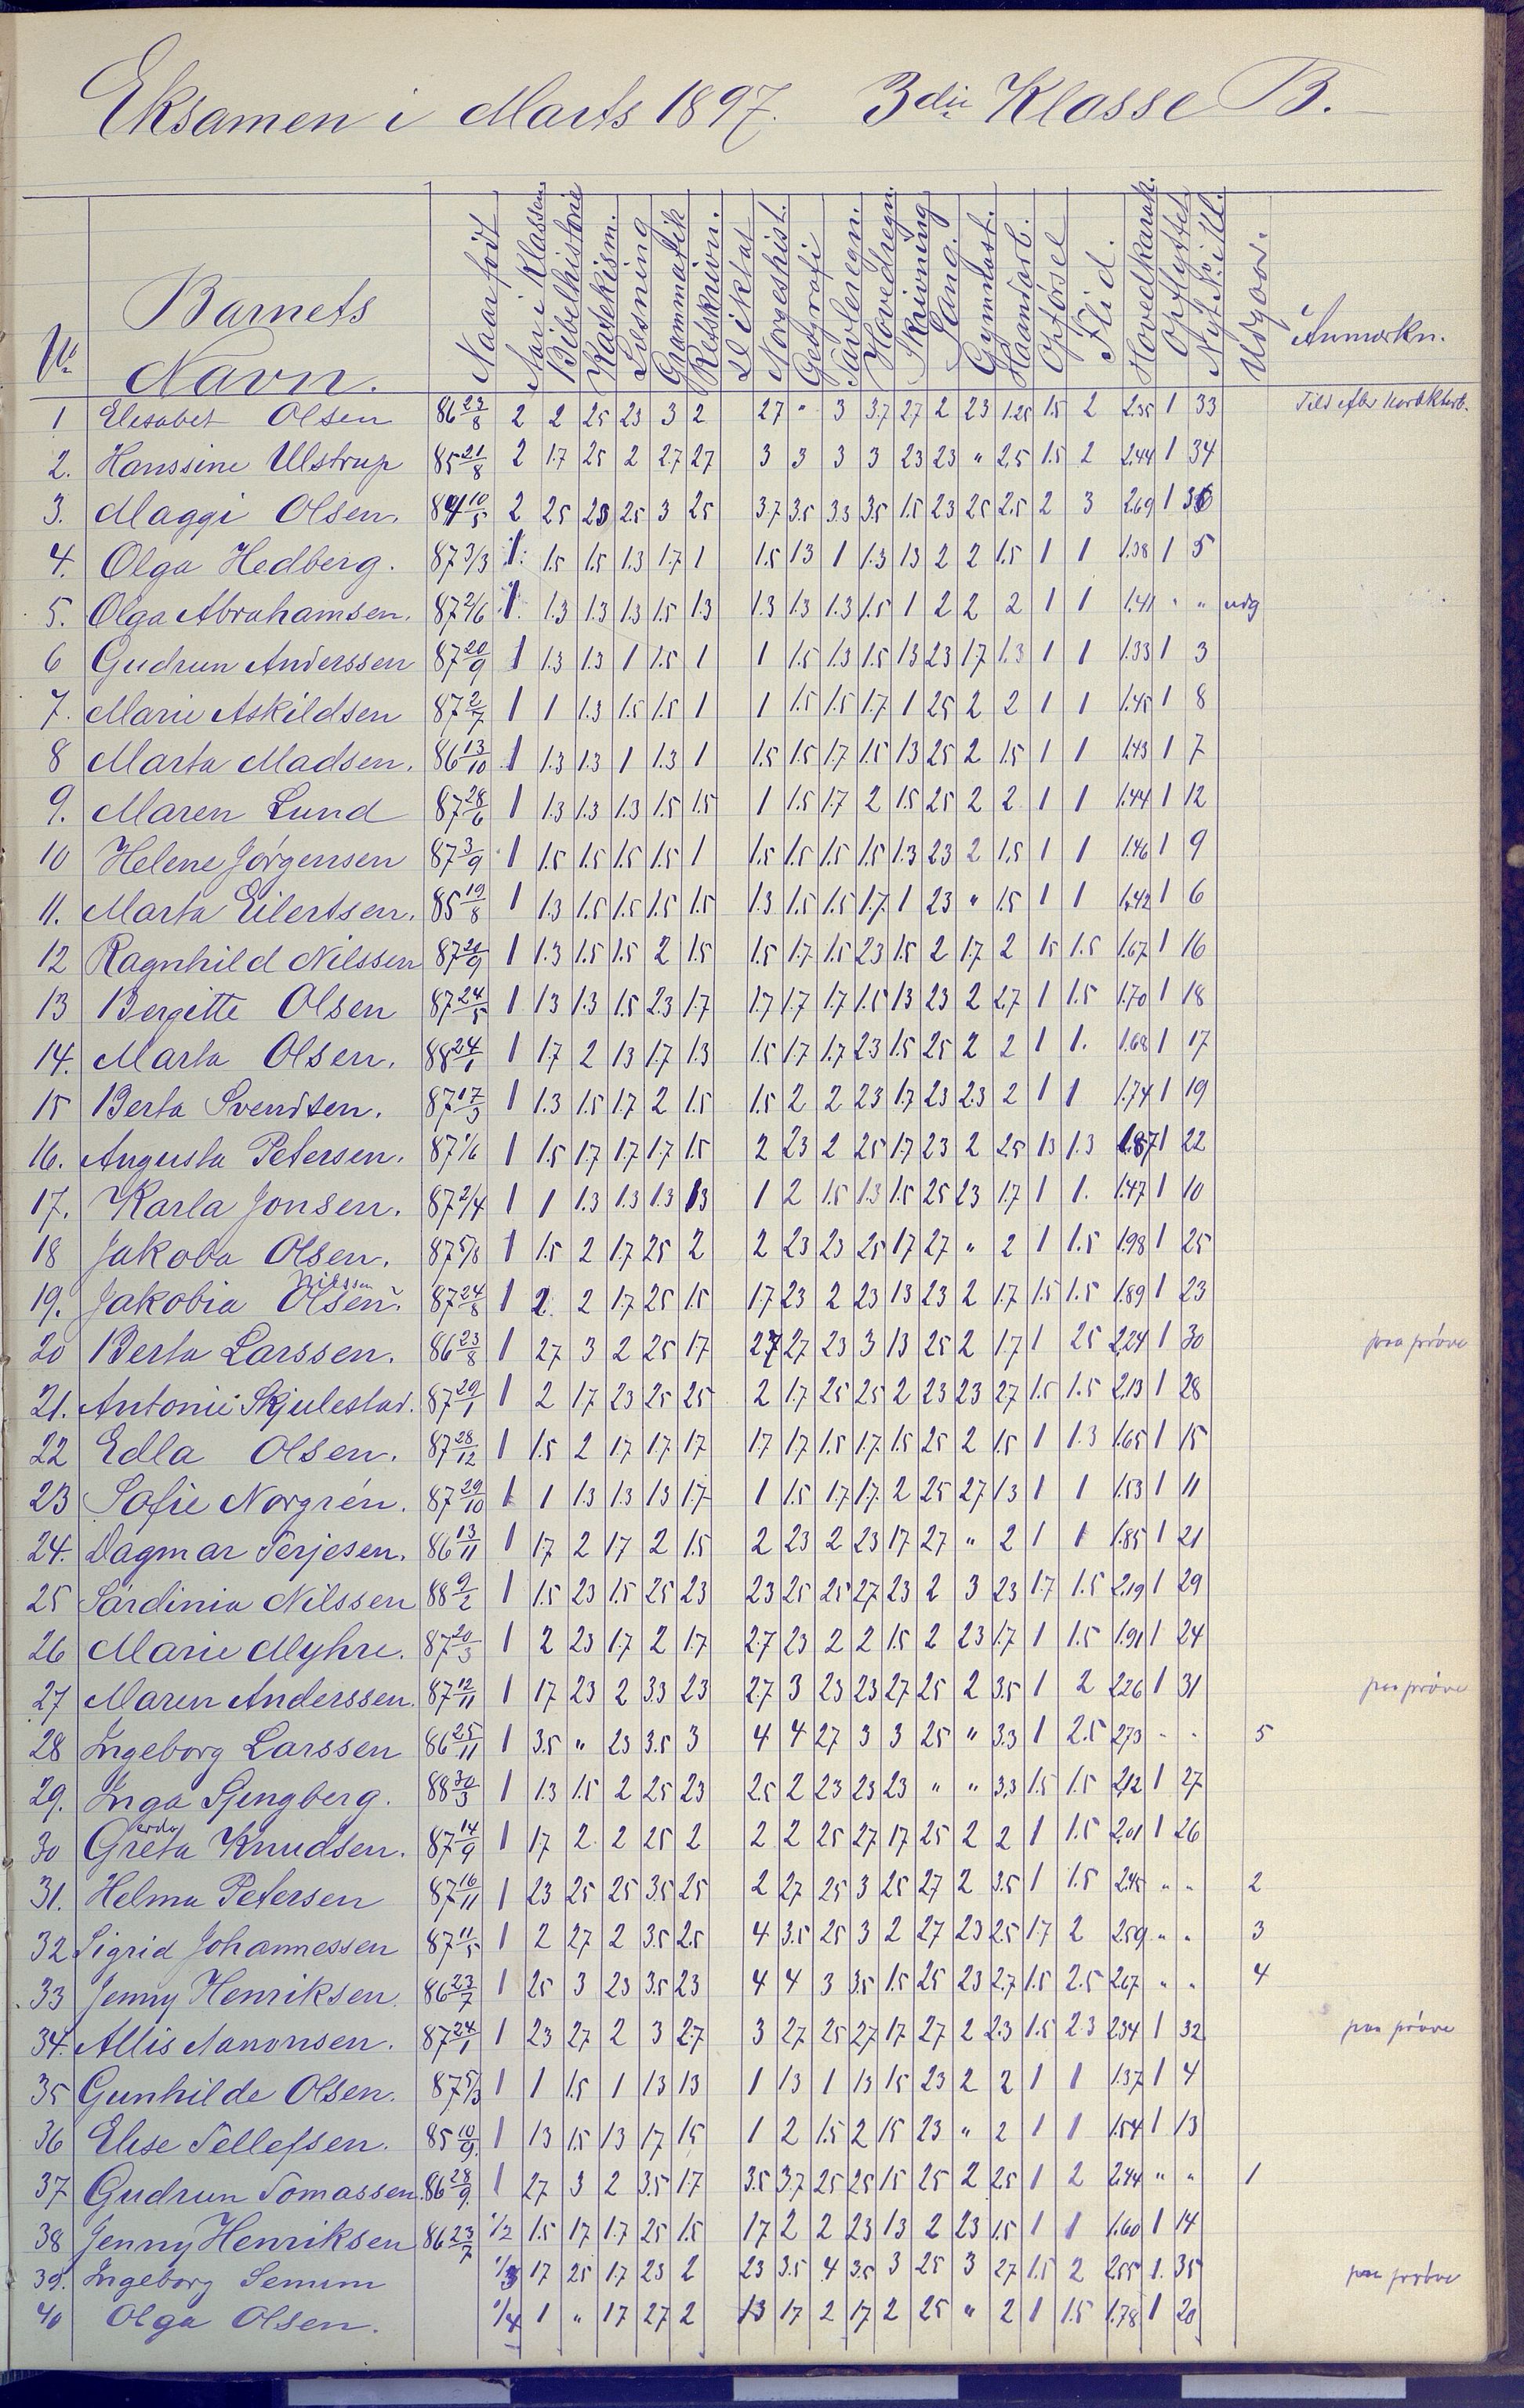 Eksamen i Marts 1897. 3die Klasse B.
No Barnets Navn. Naar født Aar i Klassen Bibelhistorie Katekism. Læsning Grammatik Retskrivn. Diktat Norgeshist. Geografi Tavleregn. Hovedregn. Skrivning Sang. Gymnast. Haandarb. Opførsel Flid. Hovedkarak. Opflyttet Nyt No i Kl. Udgaar. Anmærkn.
1 Elesabet Olsen 86 23/8 2 2 25 23 3 2 27 " 3 3.7 27 2 23 1.25 1.5 2 2.35 1 33
2. Hanssine Ulstrup 85 21/8 2 1.7 25 2 2.7 27 3 3 3 3 23 23 " 2.5 1.5 2 2.44 1 34
3. Maggi Olsen. 84 10/5 2 25 23 25 3 25 3.7 3.5 3.3 3.5 1.5 23 25 2.5 2 3 2.69 1 36
4. Olga Hedberg. 87 3/3 1 1.5 1.5 1.3 1.7 1 1.5 1.3 1 1.3 13 2 2 1.5 1 1 1.38 1 5
5. Olga Abrahamsen. 87 2/6 1 1.3 1.3 1.3 1.5 1.3 1.3 1.3 1.3 1.5 1 2 2 2 1 1 1.41 " " udg
6 Gudrun Anderssen 87 20/9 1 1.3 1.3 1 1.5 1 1 1.5 1.3 1.5 13 23 1.7 1.3 1 1 1.33 1 3
7. Marie Askildsen 87 2/7 1 1 1.3 1.5 1.5 1 1 1.5 1.5 1.7 1 25 2 2 1 1 1.45 1 8
8 Marta Madsen. 86 13/10 1 1.3 1.3 1 1.3 1 1.5 1.5 1.7 1.5 13 25 2 1.5 1 1 1.43 1 7
9. Maren Lund 87 28/6 1 1.3 1.3 1.3 1.5 1.5 1 1.5 1.7 2 1.5 25 2 2 1 1 1.44 1 12
10 Helene Jörgensen 87 3/9 1 1.5 1.5 1.5 1.5 1 1.5 1.5 1.5 1.5 1.3 23 2 1.5 1 1 1.46 1 9
11. Marta Eilertsen. 85 19/8 1 1.3 1.5 1.5 1.5 1.5 1.3 1.5 1.5 1.7 1 23 " 1.5 1 1 1.42 1 6
12 Ragnhild Nilssen 87 21/9 1 1.3 1.5 1.5 2 1.5 1.5 1.7 1.5 23 1.5 2 1.7 2 15 1.5 1.67 1 16
13 Bergitte Olsen 87 24/5 1 13 1.3 1.5 2.3 1.7 1.7 1.7 1.7 1.5 13 23 2 27 1 1.5 1.70 1 18
14. Marta Olsen. 88 24/1 1 1.7 2 13 1.7 1.3 1.5 1.7 1.7 23 1.5 25 2 2 1 1. 1.68 1 17
15 Berta Svendsen. 87 17/3 1 1.3 1.5 1.7 2 1.5 1.5 2 2 23 1.7 23 2.3 2 1 1 1.74 1 19
16. Augusta Petersen. 87 1/6 1 1.5 1.7 1.7 1.7 1.5 2 23 2 25 1.7 23 2 25 13 1.3 1.87 1 22
17. Karla Jonsen. 87 2/4 1 1 1.3 1.3 1.3 13 1 2 1.5 1.3 1.5 25 23 1.7 1 1. 1.47 1 10
18 Jakoba Olsen. 87 5/8 1 1.5 2 1.7 25 2 2 23 23 25 17 27 " 2 1 1.5 1.98 1 25
Nilssen
19. Jakobia Olsen. 87 24/8 1 2 2 1.7 25 1.5 1.7 23 2 23 13 23 2 1.7 1.5 1.5 1.89 1 23
20 Berta Larssen. 86 23/8 1 27 3 2 25 17 27 27 23 3 13 25 2 1.7 1 25 2.24 1 30 paa pröve
21. Antonie Skjulestad. 87 29/1 1 2 17 23 25 25 2 1.7 25 25 2 23 23 27 1.5 1.5 2.13 1 28
22 Edla Olsen. 87 28/12 1 1.5 2 1.7 1.7 17 1.7 1.7 1.5 1.7 1.5 25 2 1.5 1 1.3 1.65 1 15
23 Sofie Norgrén. 87 29/10 1 1 1.3 1.3 13 1.7 1 1.5 1.7 1.7 2 25 27 13 1 1 1.53 1 11
24. Dagmar Terjesen. 86 13/11 1 17 2 17 2 1.5 2 23 2 23 17 27 " 2 1 1 1.85 1 21
25 Sardinia Nilssen 88 9/2 1 1.5 23 1.5 25 23 23 25 25 27 23 2 3 23 1.7 1.5 2.19 1 29
26 Marie Myhre. 87 20/3 1 2 23 1.7 2 1.7 2.7 23 2 2 1.5 2 23 1.7 1 1.5 1.91 1 24
27 Maren Anderssen. 87 12/11 1 17 23 2 3.3 23 2.7 3 23 23 27 25 2 3.5 1 2 2.26 1 31 paa pröve
28 Ingeborg Larssen 86 25/11 1 3.5 " 23 3.5 3 4 4 27 3 3 25 " 3.3 1 2.5 2.73 " " 5
29. Inga Gjengberg. 88 30/3 1 1.3 1.5 2 25 23 2.5 2 23 23 23 " " 3.3 1.5 1.5 2.12 1 27
erda
30 Greta Knudsen. 87 14/9 1 17 2 2 25 2 2 2 25 27 17 25 2 2 1 1.5 2.01 1 26
31. Helma Petersen 87 16/11 1 23 25 25 3.5 25 2 27 25 3 25 27 2 3.5 1 1.5 2.45 " " 2
32 Sigrid Johannessen 87 11/5 1 2 27 2 3.5 2.5 4 3.5 25 3 2 27 23 2.5 1.7 2 2.59 " " 3
33 Jenny Henriksen. 86 23/7 1 25 3 23 3.5 23 4 4 3 3.5 1.5 25 23 2.7 1.5 2.5 2.67 " " 4
34. Allis Aanonsen. 87 24/1 1 23 27 2 3 2.7 3 27 25 27 17 27 2 2.3 1.5 2.3 2.34 1 32 paa pröve
35 Gunhilde Olsen. 87 5/3 1 1 1.5 1 13 13 1 13 1 13 15 23 2 2 1 1 1.37 1 4
36 Elise Tellefsen. 85 10/9 1 13 1.5 13 17 15 1 2 1.5 2 15 23 " 2 1 1 1.54 1 13
37 Gudrun Tomassen. 86 28/9 1 27 3 2 3.5 1.7 3.5 3.7 25 25 15 25 2 25 1 2 2.44 " " 1
38 Jenny Henriksen 86 23/7 1/2 1.5 17 1.7 25 1.5 17 2 2 23 13 2 23 1.5 1 1 1.60 1 14
39. Ingeborg Semim 1/3 17 25 1.7 23 2 23 3.5 4 3.5 3 25 3 27 1.5 2 2.55 1. 35 paa pröve
40 Olga Olsen. 1/4 1 " 17 27 2 13 17 2 17 2 25 " 2 1 1.5 1.78 1 20